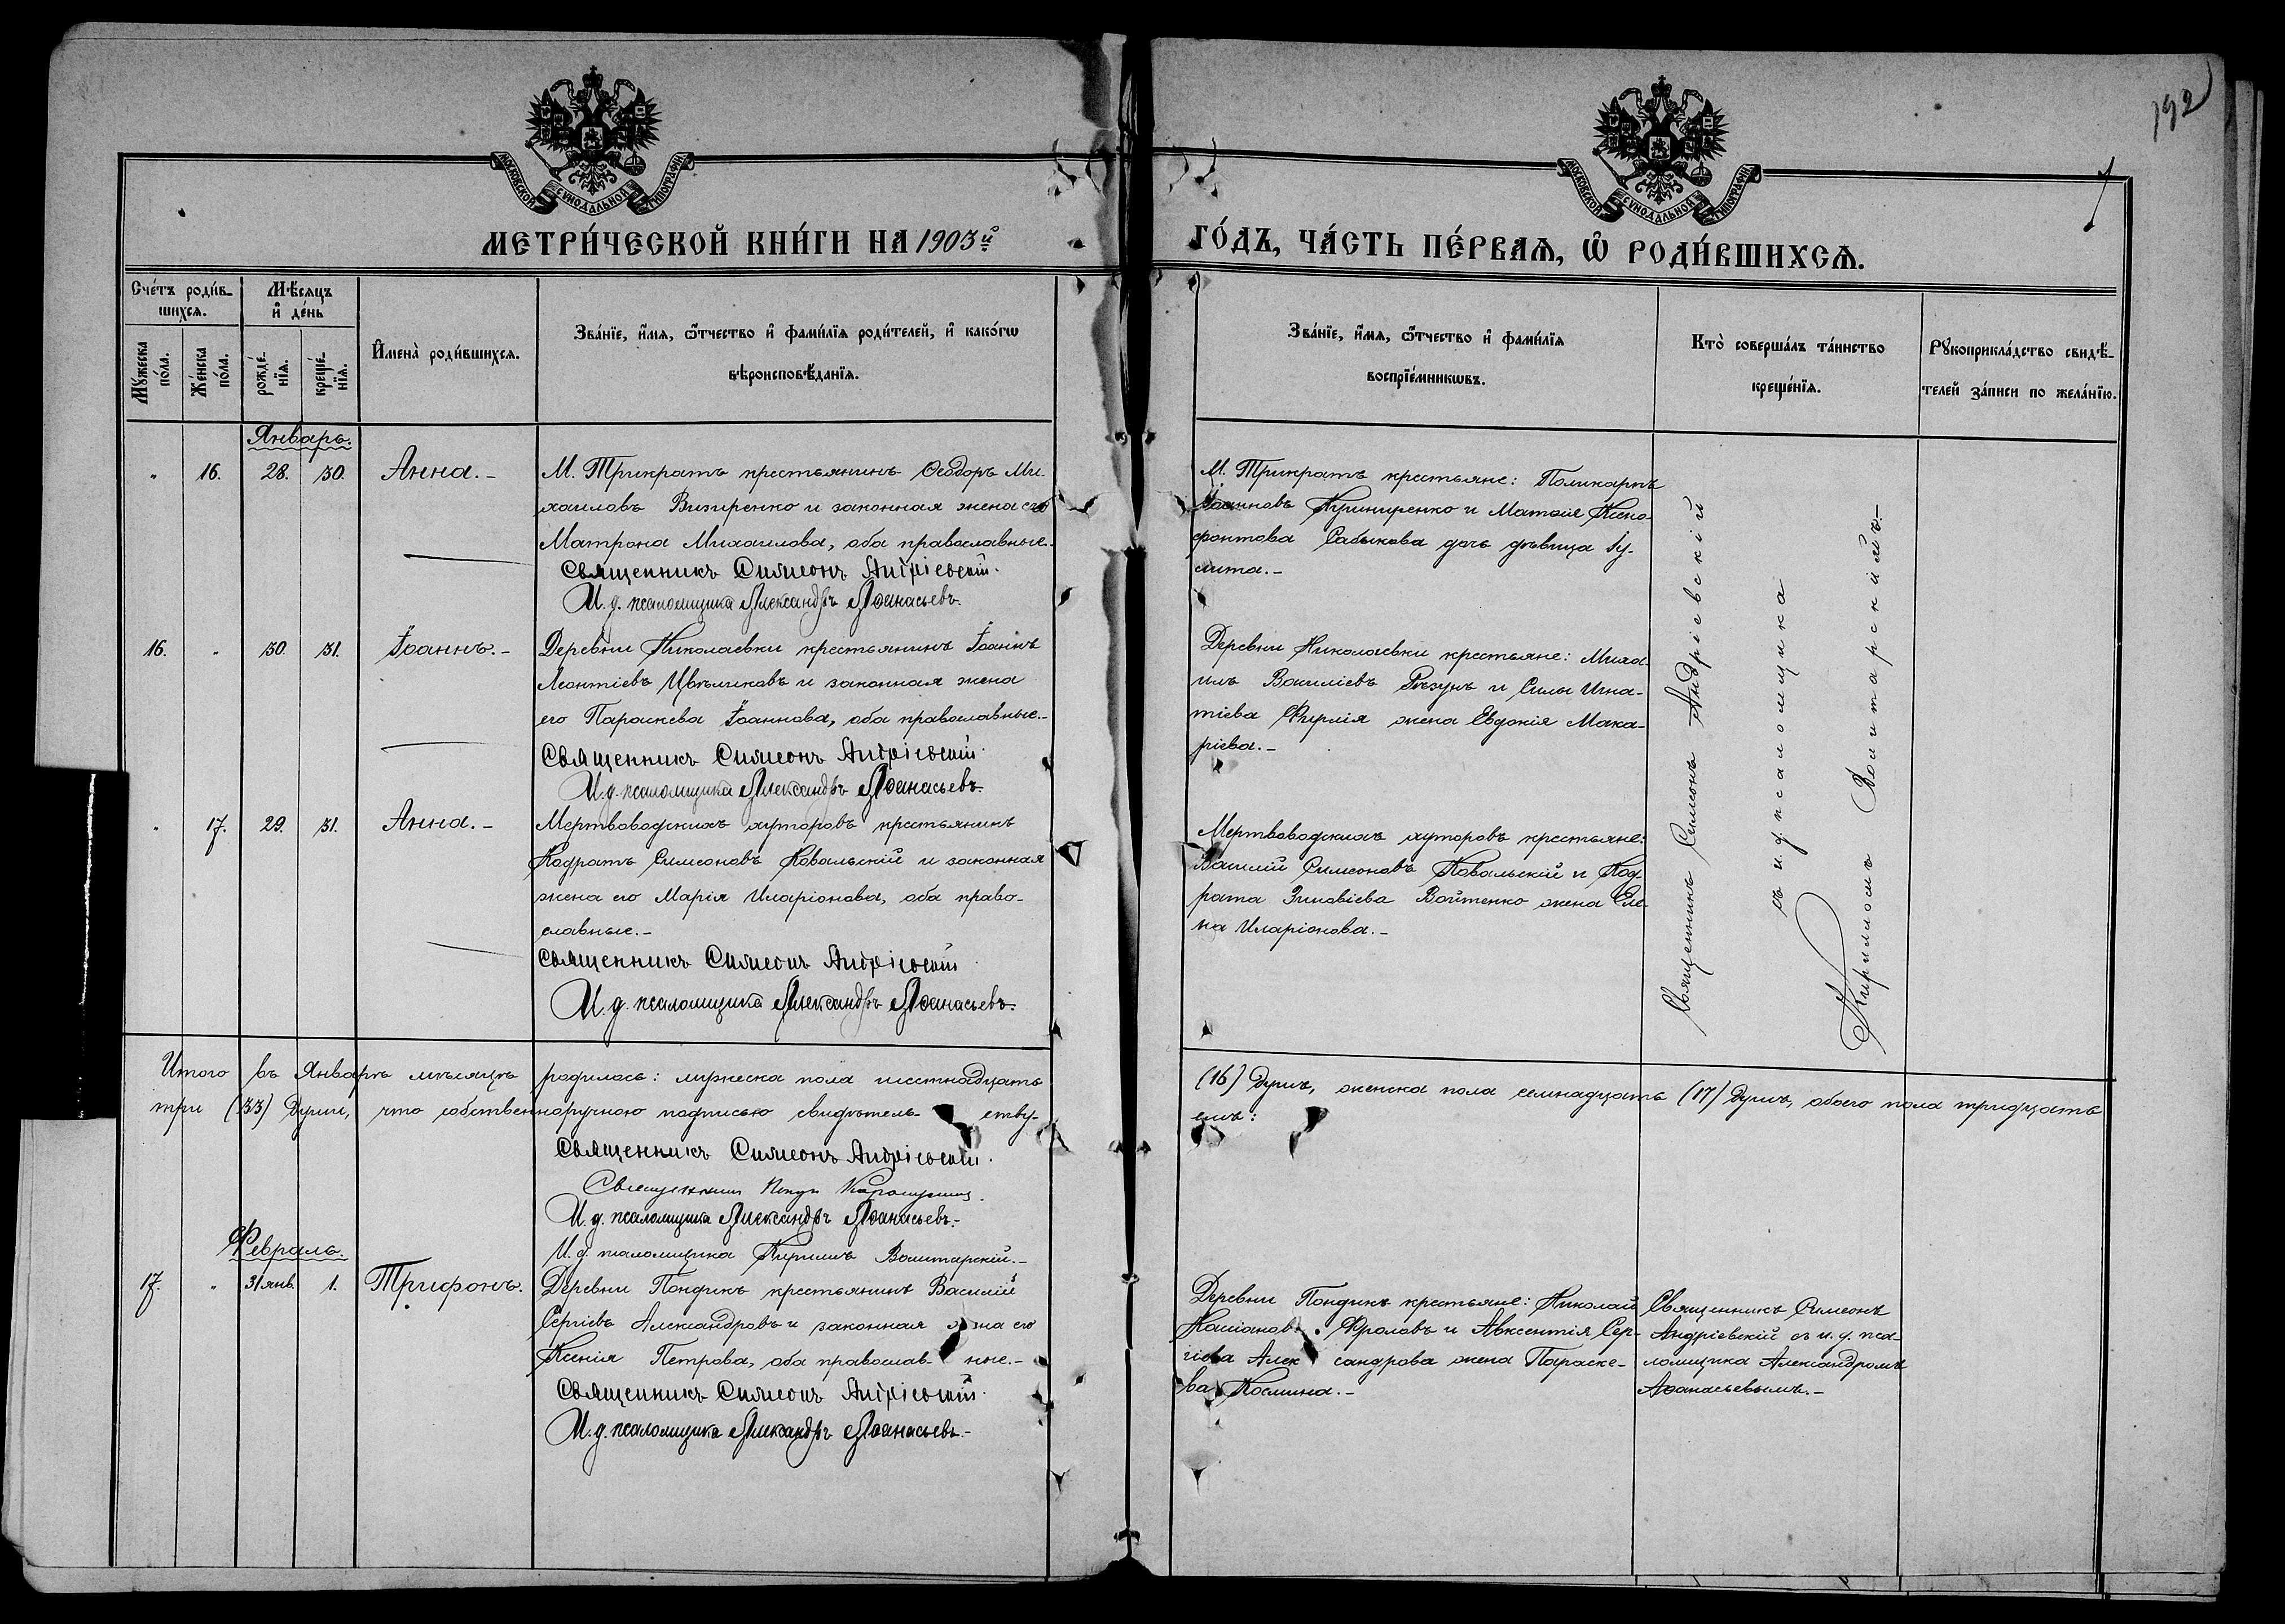 192
МОСКОВСКОЙ СУНОДАЛЬНОЙ ТИПОГРАФІИ
МОСКОВСКОЙ СУНОДАЛЬНОЙ ТИПОГРАФІИ
МЕТРИ́ЧЕСКОЙ КНИ́ГИ НА 1903й
ГО́ДЪ, ЧА́СТЬ ПЕ́РВАЯ, Ѡ РОДИ́ВШИХСЯ.
Сче́тъ роди́в-
шихся.
Мѣ́сяцъ
и де́нь
Му́жеска
по́ла.
Же́нска
по́ла.
рожде́-
нїя.
креще́-
нїя.
И҆мена̀ роди́вшихся.
Зва́нїе, и҆́мя, ѻ҆́тчество и҆ фами́лїя роди́телей, и҆ како́гѡ
вѣроисповѣ́данїя.
Зва́нїе, и҆́мя, ѻ҆́тчество и҆ фами́лїя
воспрїе́мникѡвъ.
Кто̀ соверша́лъ та́инство
креще́нїя.
Рꙋкоприкла́дство свидѣ́-
телей за́писи по жела́нїю.
Январь.
" 16. 28. 30. Анна.-
М. Трикратъ крестьянинъ Ѳеодоръ Ми-
хаиловъ Витренко и законная жена его
Матрона Михаилова, оба православные.
Священникъ Симеонъ Андріевскій.
И. д. псаломщика Александръ Аѳанасьевъ.
М. Трикратъ крестьяне: Поликарпъ
Іоанновъ и Матѳія Ксено-
фонтова Сабыкова дочь дѣвица Іу-
лита.-
16. " 30. 31. Іоаннъ.-
Деревни Николаевки крестьянинъ Іоаннъ
Леонтіевъ Цвѣликовъ и законная жена
его Параскева Іоаннова, оба православные.-
Священникъ Симеонъ Андріевскій.
И. д. псаломщика Александръ Аѳанасьевъ.
Деревни Николаевки крестьяне: Миха-
илъ Василіевъ Рѣзунъ и Силы Игна-
тіева жена Евдокія Мака-
ріева.-
" 17. 29. 31. Анна.-
Мертвоводскихъ хуторовъ крестьянинъ
Кодратъ Симеоновъ Ковальскій и законная
жена его Марія Иларіонова, оба право-
славные.-
Священникъ Симеонъ Андріевскій
И. д. псаломщика Александръ Аѳанасьевъ.
Мертвоводскихъ хуторовъ крестьяне:
Василій Симеоновъ Ковальскій и Код-
рата Зиновіева Войтенко жена Еле-
на Иларіонова.-
Священникъ Симеонъ Андріевскій
съ и. д. псаломщика
Кирилломъ Волитарскимъ.-
Итого въ Январѣ мѣсяцѣ родилось: мужеска пола шестнадцать (16) душъ, женска пола семнадцать (17) душъ, обоего пола тридцать
три (33) души, что собственноручною подписью свидѣтель- ству-
емъ:
Священникъ Симеонъ Андріевскій.
Священникъ
И. д. псаломщика Александръ Аѳанасьевъ.-
И. д. псаломщика Кириллъ Волитарскій.-
Февраль.
17. " 31 янв. 1. Трифонъ.
Деревни Пондикъ крестьянинъ Василій
Сергіевъ Александровъ и законная жена его
Ксенія Петрова, оба православ- ные.-
Священникъ Симеонъ Андріевскій.
И. д. псаломщика Александръ Аѳанасьевъ.-
Деревни Пондикъ крестьяне: Николай
Касіановъ Фроловъ и Авксентія Сер-
гіева Алек сандрова жена Параске-
ва Космина.-
Священникъ Симеонъ
Андріевскій съ и. д. пса-
ломщика Александромъ
Аѳанасьевымъ.-